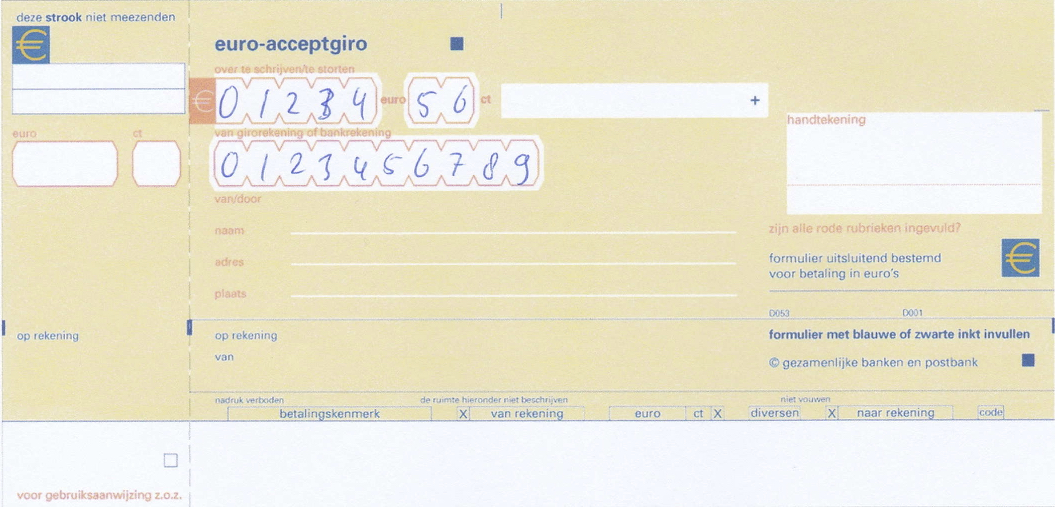 deze strook niet meezenden
€
euro ct
euro-acceptgiro
over te schrijven/te storten
€ 01234 euro 56 ct +
van girorekening of bankrekening
0123456789
van/door
naam
adres
plaats
handtekening
zijn alle rode rubrieken ingevuld?
formulier uitsluitend bestemd
voor betaling in euro's
€
D053 D001
op rekening
op rekening
van
formulier met blauwe of zwarte inkt invullen
© gezamenlijke banken en postbank
nadruk verboden de ruimte hieronder niet beschrijven niet vouwen
betalingskenmerk X van rekening euro ct X diversen X naar rekening code
voor gebruiksaanwijzing z.o.z.